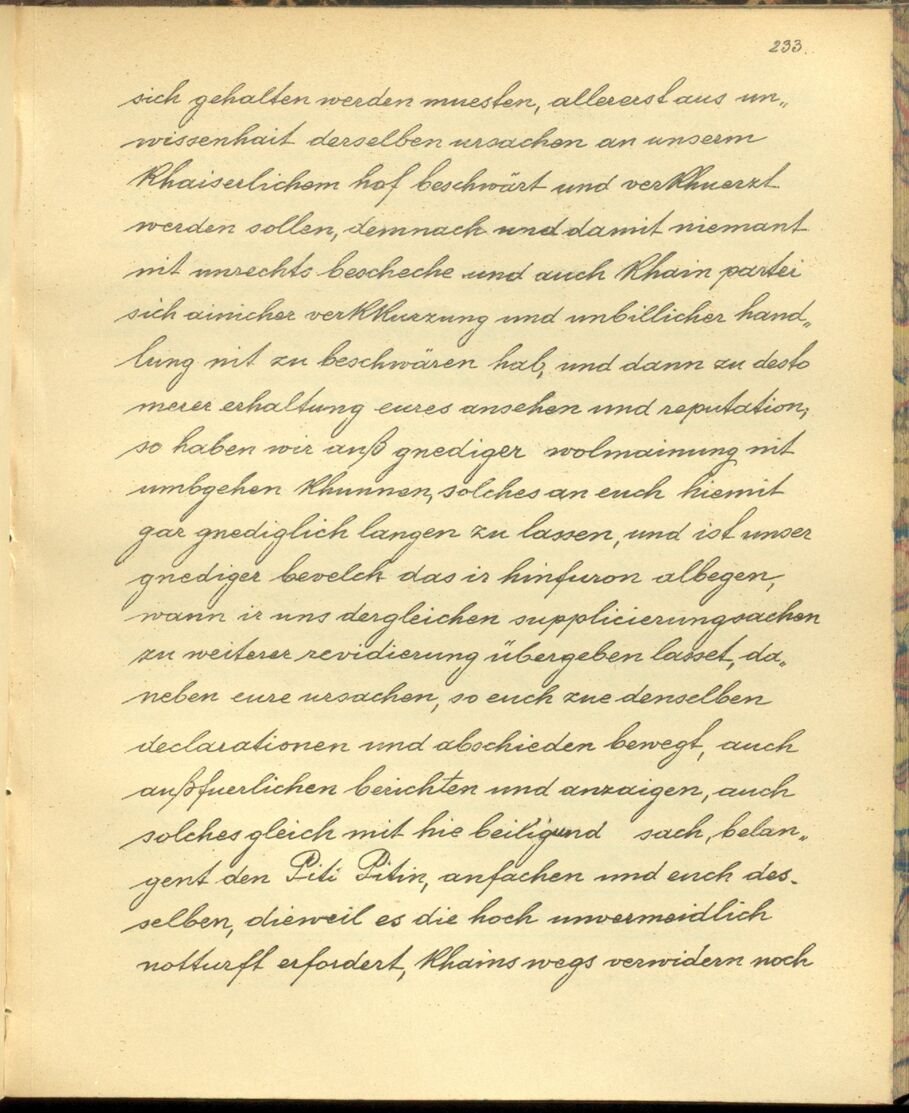 233.
sich gehalten werden muesten, allererst aus un„
wissenhait derselben ursachen an unserm
Khaiserlichem hof beschwärt und verkhuerzt
werden sollen, demnach und damit niemant
nit unrechts bescheche und auch khain partei
sich ainicher verkhurzung und unbillicher hand„
lung nit zu beschwären hab, und dann zu desto
merer erhaltung eures ansehen und reputation,
so haben wir auß gnediger wolmainung nit
umbgehen khunnen, solches an euch hiemit
gar gnediglich langen zu lassen, und ist unser
gnediger bevelch das ir hinfuron albegen,
wann ir uns dergleichen supplicierungsachen
zu weiterer revidierung übergeben lasset, da„
neben eure ursachen, so euch zue denselben
declarationen und abschieden bewegt, auch
außfuerlichen berichten und anzaigen, auch
solches gleich mit hie beiligund sach, belan„
gent den Piti Pitin, anfachen und euch des-
selben, dieweil es die hoch unvermeidlich
notturft erfordert, khains wegs verwidern noch